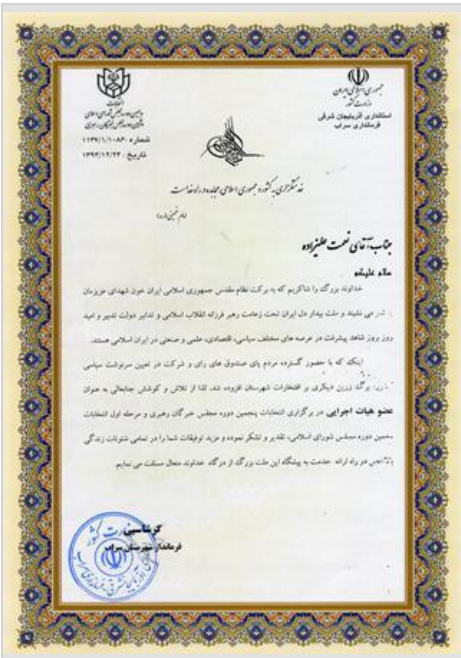 جمهوری اسلامی ایران
وزارت کشور
استانداری آذربایجان شرقی
فرمانداری سراب
انتخابات
شماره : ۱۱۳۷/۱/۱۰۸۶
تاریخ : ۱۳۹۴/۱۲/۲۳
خدمتگزاری به کشور جمهوری اسلامی مجاهده در راه خداست
امام خمینی (ره)
جناب آقای نعمت علیزاده
سلام علیکم
خداوند بزرگ را شاکریم که به برکت نظام مقدس جمهوری اسلامی ایران خون شهدای عزیزمان
به ثمر می نشیند و ملت بیدار دل ایران تحت زعامت رهبر فرزانه انقلاب اسلامی و تدابیر دولت تدبیر و امید
روز بروز شاهد پیشرفت در عرصه های مختلف سیاسی، اقتصادی، علمی و صنعتی در ایران اسلامی هستند.
اینک که با حضور گسترده مردم پای صندوق های رای و شرکت در تعیین سرنوشت سیاسی
برگ زرین دیگری بر افتخارات شهرستان افزوده شد. لذا از تلاش و کوشش جنابعالی به عنوان
عضو هیات اجرایی در برگزاری انتخابات پنجمین دوره مجلس خبرگان رهبری و مرحله اول انتخابات
دهمین دوره مجلس شورای اسلامی، تقدیر و تشکر نموده و مزید توفیقات شما را در تمامی شئونات زندگی
در راه ارائه خدمت به پیشگاه این ملت بزرگ از درگاه خداوند متعال مسئلت می نمایم.
گرشاسبی
فرماندار شهرستان سراب